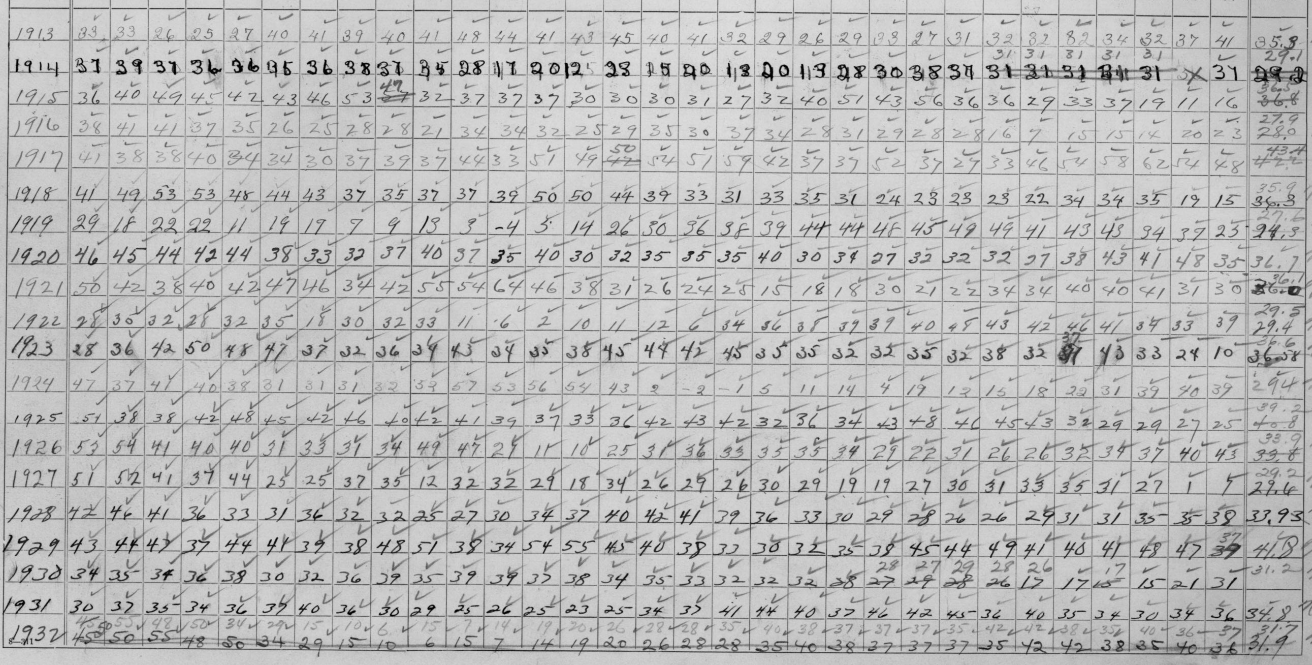 1913 33 33 26 25 27 40 41 39 40 41 48 44 41 43 45 40 41 32 29 26 29 33 27 31 32 32 32 34 32 37 41 35.3
31 31 31 31 31 29.1
1914 37 39 37 36 36 35 36 38 37 35 28 17 20 12 28 15 20 13 20 19 28 30 38 37 31 31 31 31 31 31 29.2
47 36.5
1915 36 40 49 45 42 43 46 53 32 37 37 37 30 30 30 31 27 32 40 51 43 56 36 36 29 33 37 19 11 16 36.8
27.9
1916 38 41 41 37 35 26 25 28 28 21 34 34 32 25 29 35 30 37 34 28 31 29 28 28 16 7 15 15 14 20 23 28.0
50 43.4
1917 41 38 38 40 34 34 30 37 39 37 44 33 51 49 47 54 51 59 42 37 37 52 37 27 33 46 54 58 62 54 48
35.9
1918 41 49 53 53 48 44 43 37 35 37 37 39 50 50 44 39 33 31 33 35 31 24 23 23 23 22 34 34 35 19 15 36.3
27.6
1919 29 18 22 22 11 19 17 7 9 13 3 -4 5 14 26 30 36 38 39 44 44 48 45 49 49 41 43 43 34 37 25
1920 46 45 44 42 44 38 33 32 37 40 37 35 40 30 32 35 35 35 40 30 34 27 32 32 32 27 38 43 41 48 35 36.7
36.1
1921 50 42 38 40 42 47 46 34 42 55 54 64 46 38 31 26 24 25 15 18 18 30 21 22 34 34 40 40 41 31 30 36.0
29.5
1922 28 35 32 28 32 35 18 30 32 33 11 6 2 10 11 12 6 34 36 38 39 39 40 48 43 42 46 41 34 33 39 29.4
37 36.6
1923 28 36 42 50 48 47 37 32 36 34 43 34 35 38 45 44 42 45 35 35 32 32 35 32 38 32 43 33 24 10 36.58
1924 47 37 41 40 38 31 31 31 32 52 57 53 56 54 43 2 -2 -1 5 11 14 4 19 12 15 18 22 31 39 40 39 29.4
39.2
1925 51 38 38 42 48 45 42 46 40 42 41 39 37 33 36 42 43 42 32 36 34 43 48 46 45 43 32 29 29 27 25 40.8
33.9
1926 53 54 41 40 40 31 33 31 34 49 47 29 11 10 25 31 36 33 35 35 34 29 22 31 26 26 32 34 37 40 43 33.8
29.2
1927 51 52 41 37 44 25 25 37 35 12 32 32 29 18 34 26 29 26 30 29 19 19 27 30 31 33 35 31 27 1 9 29.6
1928 42 46 41 36 33 31 36 32 32 25 27 30 34 37 40 42 41 39 36 33 30 29 28 26 26 29 31 31 35 35 38 33.93
37
1929 43 44 47 37 44 41 39 38 48 51 38 34 54 55 45 40 38 33 30 32 35 38 45 44 49 41 40 41 48 47 39 41.8
28 27 29 28 26 17 31.2
1930 34 35 34 36 38 30 32 36 39 35 39 39 37 38 34 35 33 32 32 32 28 27 29 28 26 17 17 15 15 21 31
1931 30 37 35 34 36 37 40 36 30 29 25 26 25 23 25 34 37 41 44 40 37 46 42 45 36 40 35 34 30 34 36 34.8
45 50 55 48 50 34 29 15 10 6 15 7 14 19 20 26 28 28 35 40 38 37 37 37 35 42 42 38 35 40 36 37 31.7
1932 45 50 55 48 50 34 29 15 10 6 15 7 14 19 20 26 28 28 35 40 38 37 37 37 35 42 42 38 35 40 36 31.9